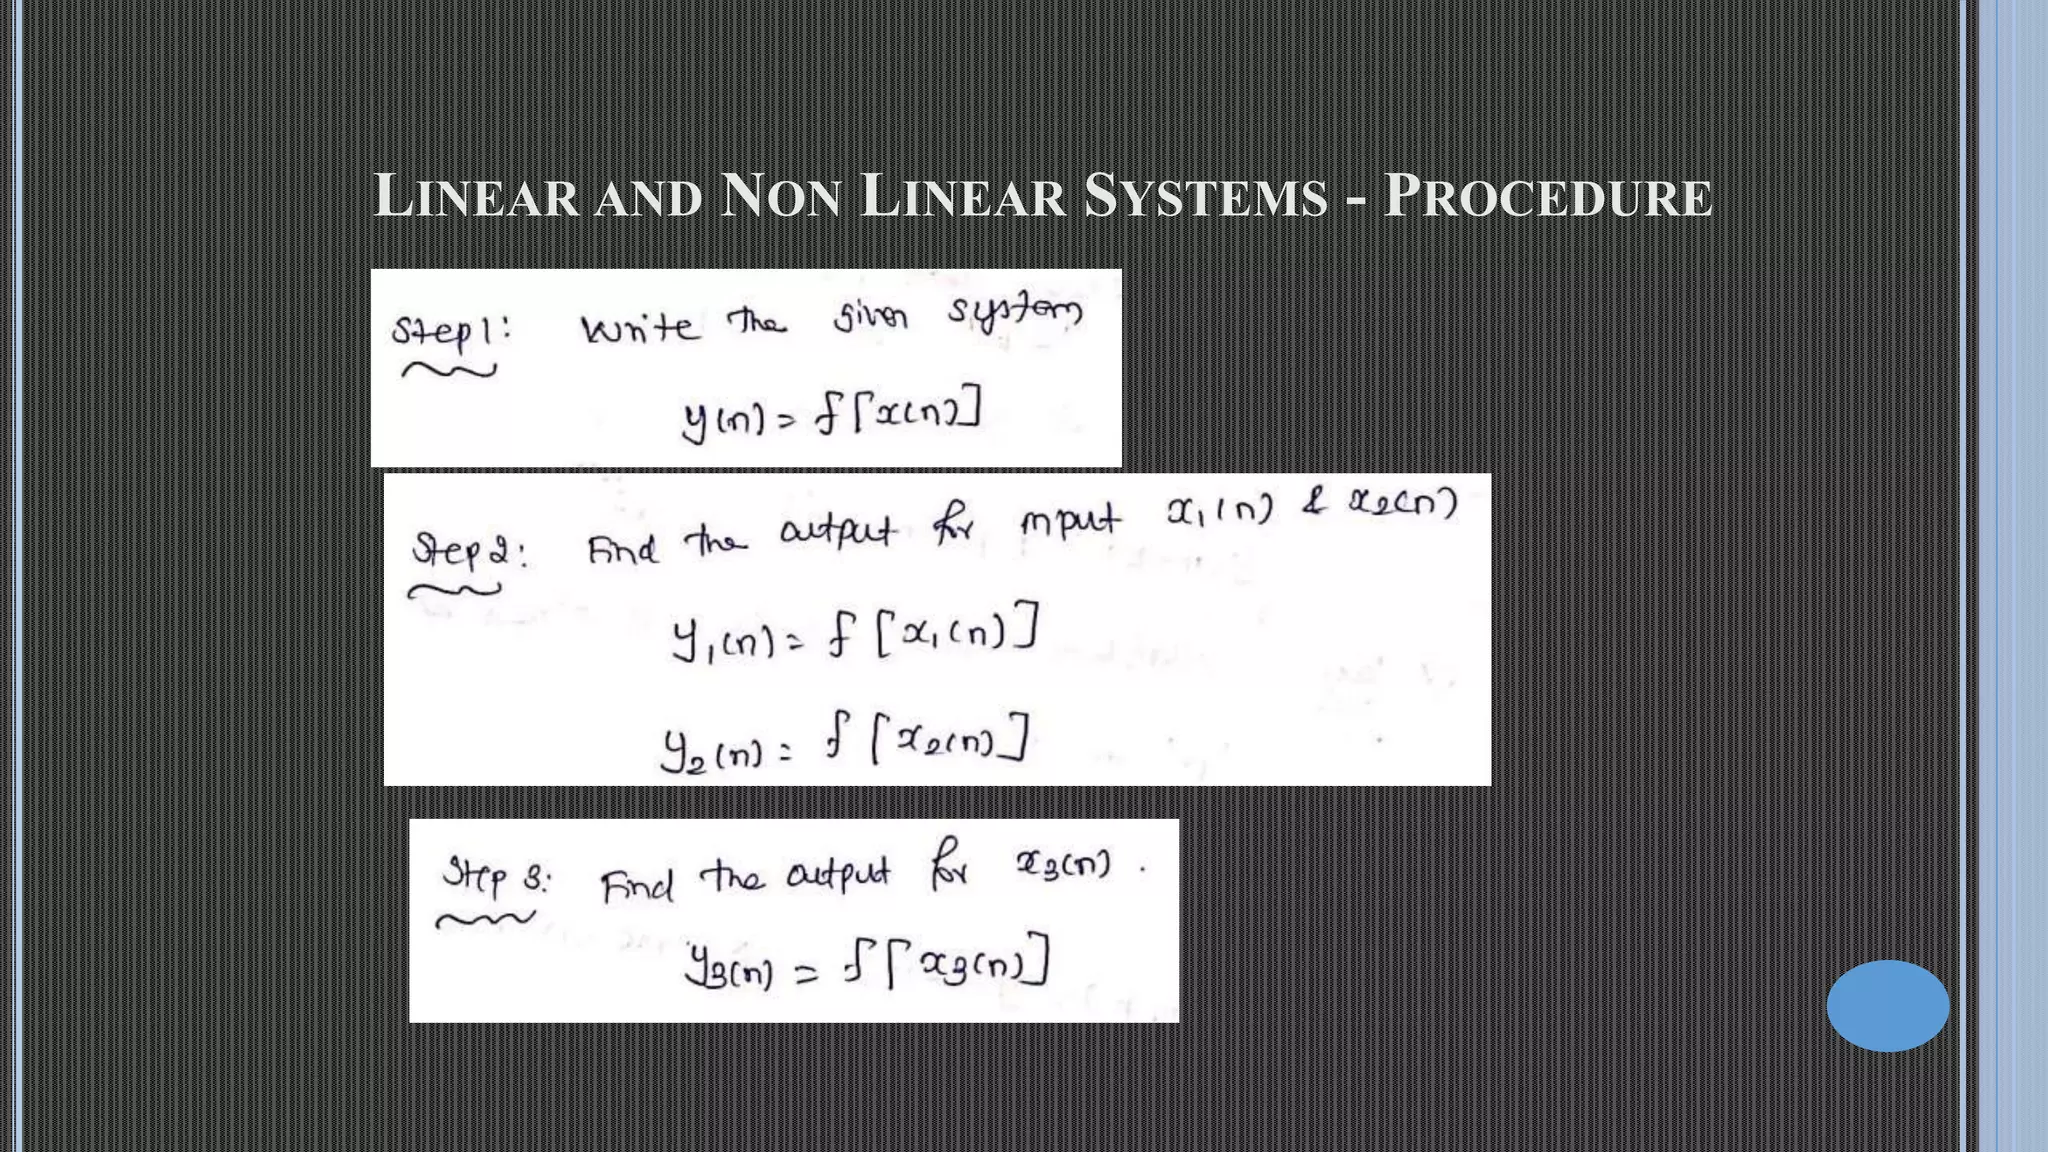 LINEAR AND NON LINEAR SYSTEMS - PROCEDURE
Step 1: Write the given system
y(n) = f[x(n)]
Step 2: Find the output for input x₁(n) & x₂(n)
y₁(n) = f[x₁(n)]
y₂(n) = f[x₂(n)]
Step 3: Find the output for x₃(n).
y₃(n) = f[x₃(n)]